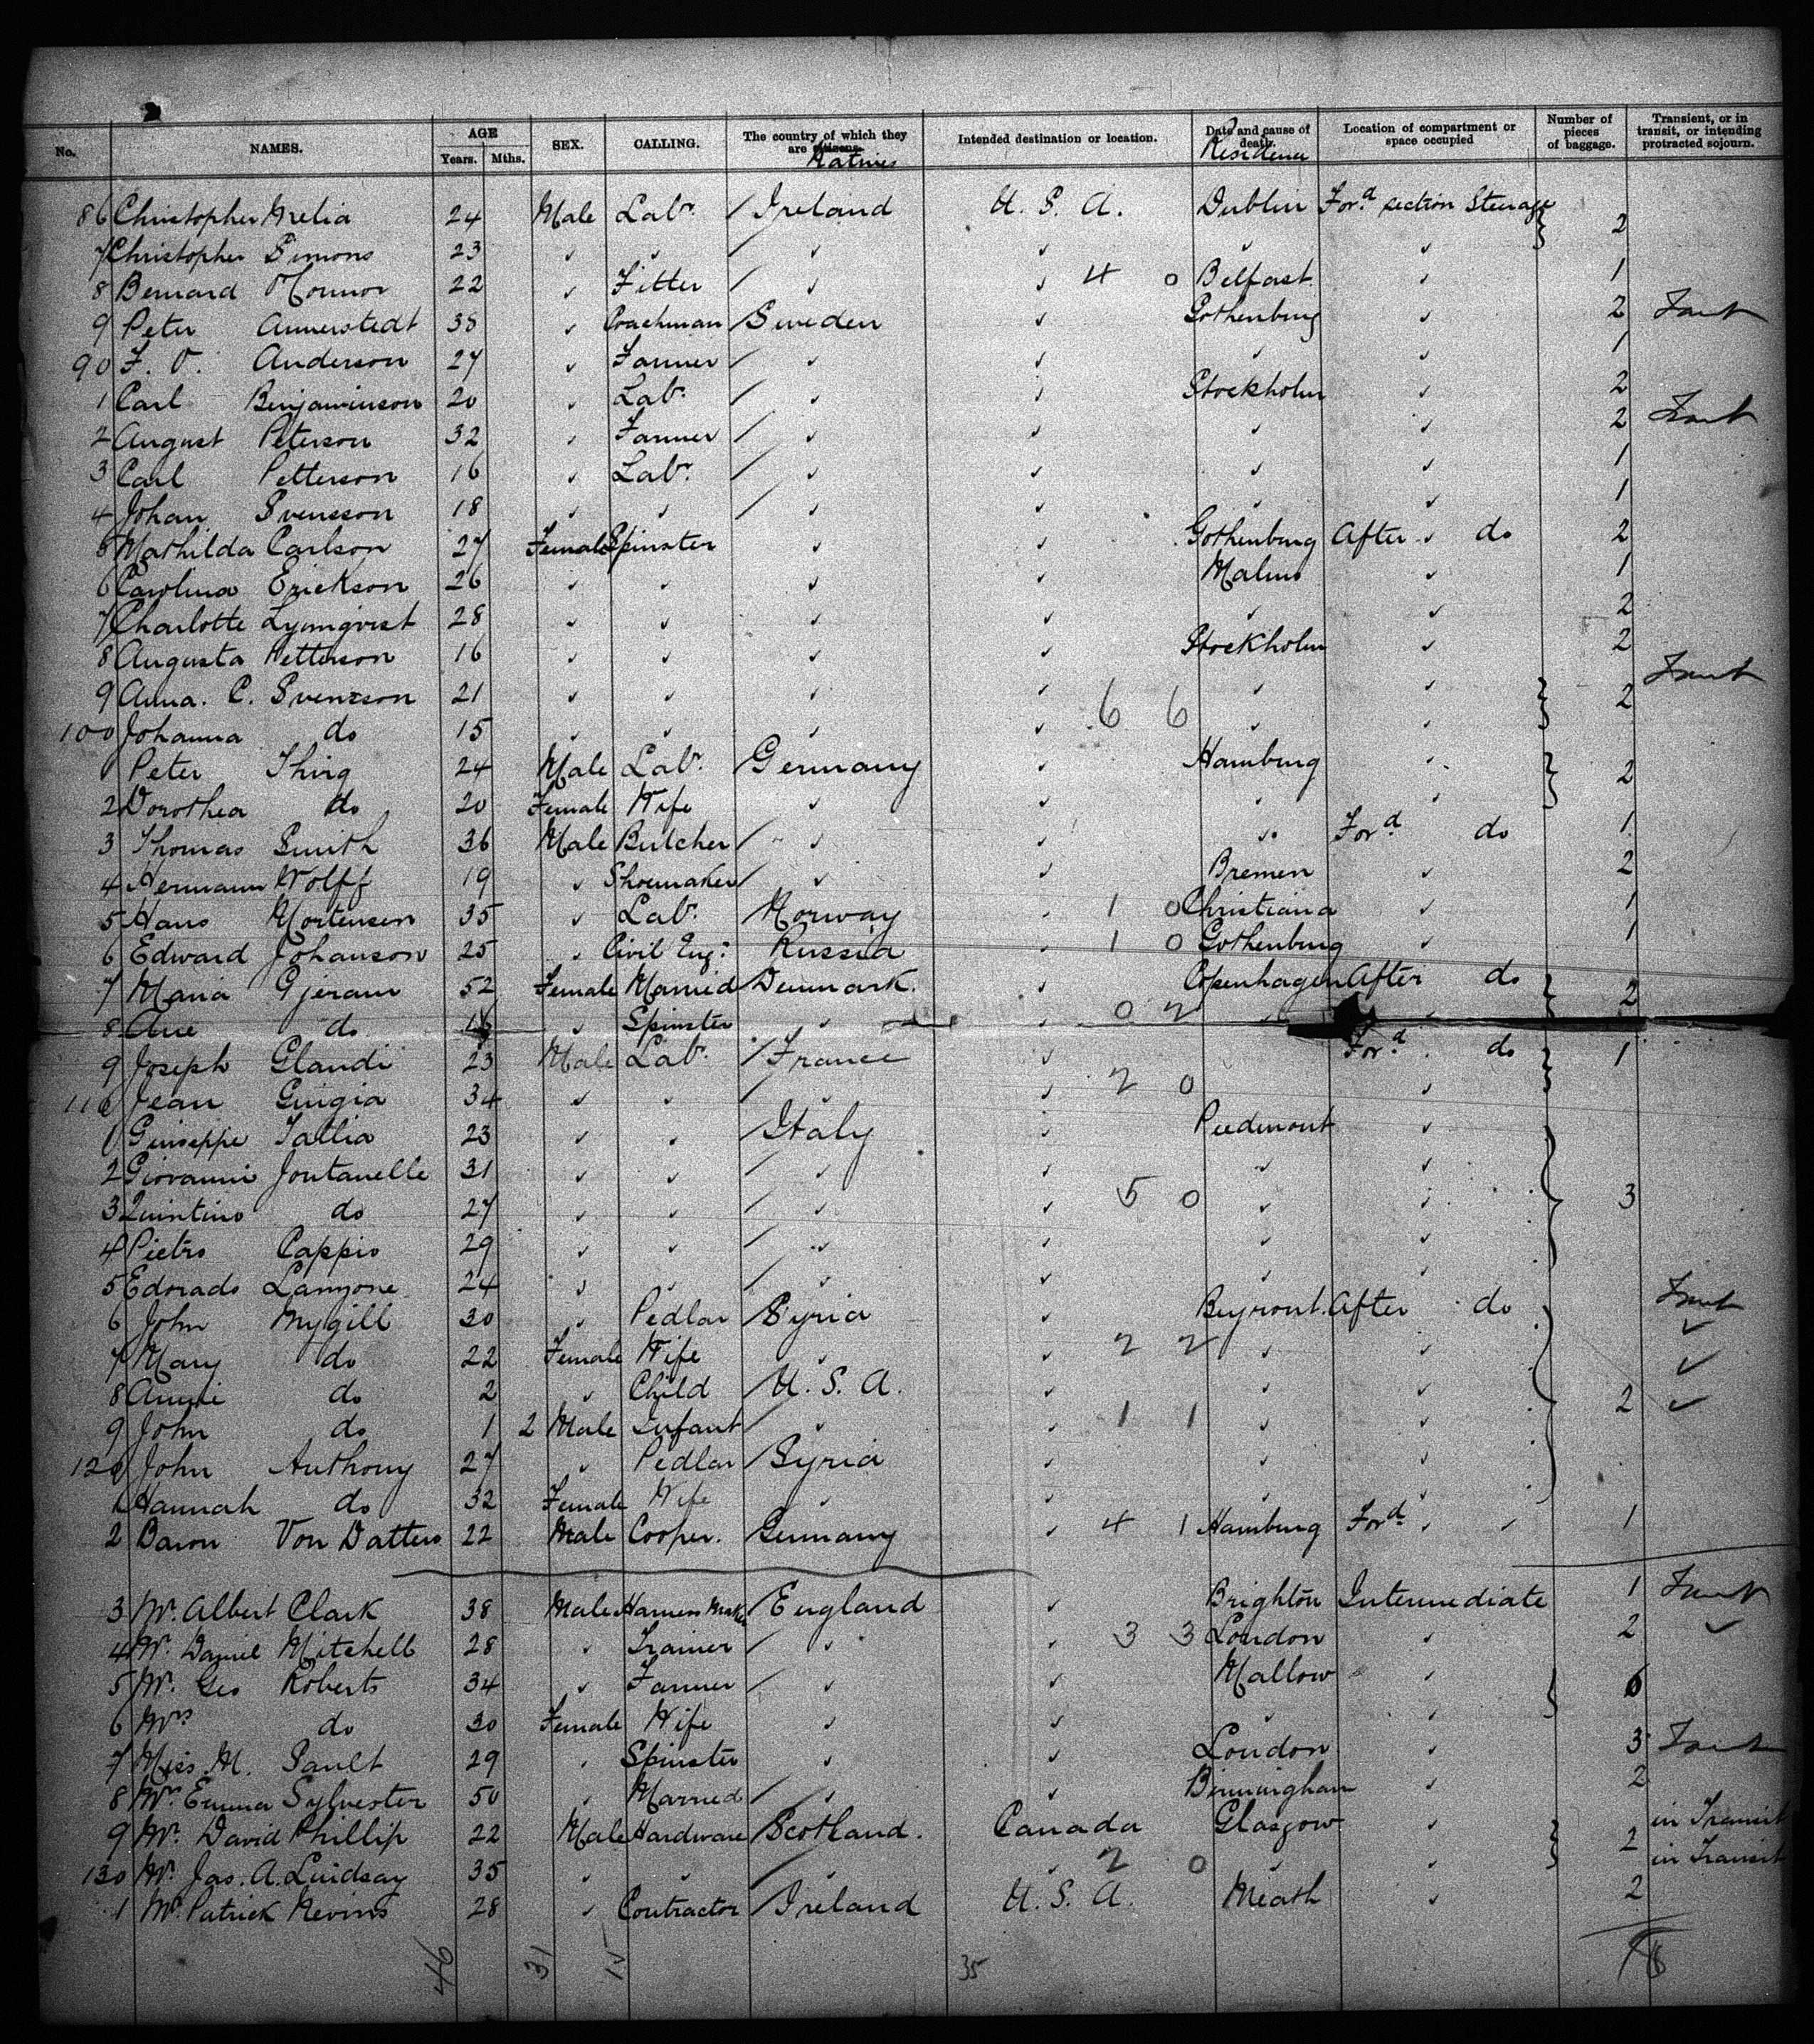 No. NAMES. AGE Years. Mths. SEX. CALLING. The country of which they are citizens. Natives Intended destination or location. Date and cause of death. Residence Location of compartment or space occupied Number of pieces of baggage. Transient, or in transit, or intending protracted sojourn.
86 Christopher Melia 24 Male Labr. / Ireland U. S. A. Dublin Ford section Steerage 2
7 Christopher Simons 23 ✓ ✓ / ✓ ✓ ✓ ✓
8 Bernard O'Connor 22 ✓ Fitter / ✓ ✓ 4 0 Belfast ✓ 1
9 Peter Annerstedt 38 ✓ Coachman / Sweden ✓ Gothenburg ✓ 2
90 F. O. Anderson 27 ✓ Farmer / ✓ ✓ ✓ ✓ 1
1 Carl Benjaminson 20 ✓ Labr. / ✓ ✓ Stockholm ✓ 2
2 August Peterson 32 ✓ Farmer / ✓ ✓ ✓ ✓ 2
3 Carl Petterson 16 ✓ Labr. / ✓ ✓ ✓ ✓ 1
4 Johan Svensson 18 ✓ ✓ / ✓ ✓ ✓ ✓ 1
5 Mathilda Carlson 27 Female Spinster ✓ ✓ Gothenburg After ✓ do 2
6 Carolina Erickson 26 ✓ ✓ ✓ ✓ Malmo ✓ 1
7 Charlotte Lyomqvist 28 ✓ ✓ ✓ ✓ ✓ ✓ 2
8 Augusta Petterson 16 ✓ ✓ ✓ ✓ Stockholm ✓ 2
9 Anna. C. Svensson 21 ✓ ✓ ✓ ✓ 6 6 ✓ ✓ 2
100 Johanna do 15 ✓ ✓ ✓ ✓ ✓ ✓
1 Peter Thing 24 Male Labr. / Germany ✓ Hamburg ✓ 2
2 Dorothea do 20 Female Wife ✓ ✓ ✓ ✓
3 Thomas Smith 36 Male Butcher / ✓ ✓ ✓ Ford do 1
4 Hermann Wolff 19 ✓ Shoemaker / ✓ ✓ Bremen ✓ 2
5 Hans Mortensen 35 ✓ Labr. / Norway ✓ 1 0 Christiana ✓ 1
6 Edward Johanson 25 ✓ Civil Eng: Russia ✓ 1 0 Gothenburg ✓ 1
7 Maria Gjeram 52 Female Married Denmark. ✓ Copenhagen After do 2
8 Ane do ✓ Spinster ✓ ✓ 0 2 ✓ ✓
9 Joseph Glandi 23 Male Labr. / France ✓ Ford do 1
110 Jean Guigia 34 ✓ ✓ / ✓ ✓ 2 0 ✓
1 Giuseppe Tallia 23 ✓ ✓ / Italy ✓ Piedmont ✓
2 Giovanni Fontanelle 31 ✓ ✓ / ✓ ✓ ✓ ✓
3 Quintino do 27 ✓ ✓ / ✓ ✓ 5 0 ✓ ✓ 3
4 Pietro Cappio 29 ✓ ✓ / ✓ ✓ ✓ ✓
5 Edorado Lanzone 24 ✓ ✓ / ✓ ✓ ✓ ✓
6 John Mygill 30 ✓ Pedlar / Syria ✓ Beyrout. After do
7 Mary do 22 Female Wife ✓ ✓ 2 2 ✓ ✓ ✓
8 Annie do 2 ✓ Child / U. S. A. ✓ ✓ ✓ 2 ✓
9 John do 1 2 Male Infant / ✓ ✓ 1 1 ✓ ✓ ✓
120 John Anthony 27 ✓ Pedlar / Syria ✓ ✓ ✓
1 Hannah do 32 Female Wife ✓ ✓ ✓ ✓
2 Baron Von Datters 22 Male Cooper. / Germany ✓ 4 1 Hamburg Ford ✓ ✓ 1
3 Mr. Albert Clark 38 Male Harness Maker / England ✓ Brighton Intermediate 1
4 Mr. Daniel Mitchell 28 ✓ Trainer / ✓ ✓ 3 3 London ✓ 2 ✓
5 Mr. Geo Roberts 34 ✓ Farmer / ✓ ✓ Mallow ✓ 6
6 Mrs do 30 Female Wife ✓ ✓ ✓ ✓
7 Miss M. Sault 29 ✓ Spinster ✓ ✓ London ✓ 3
8 Mrs Emma Sylvester 50 ✓ Married / ✓ ✓ Birmingham ✓ 2
9 Mr. David Phillip 22 Male Hardware / Scotland. Canada Glasgow ✓ 2 in Transit
130 Mr. Jas. A. Lindsay 35 ✓ ✓ / ✓ ✓ 2 0 ✓ ✓ in Transit
1 Mr. Patrick Nevins 28 ✓ Contractor / Ireland U. S. A. Meath ✓ 2
46 31 15 35